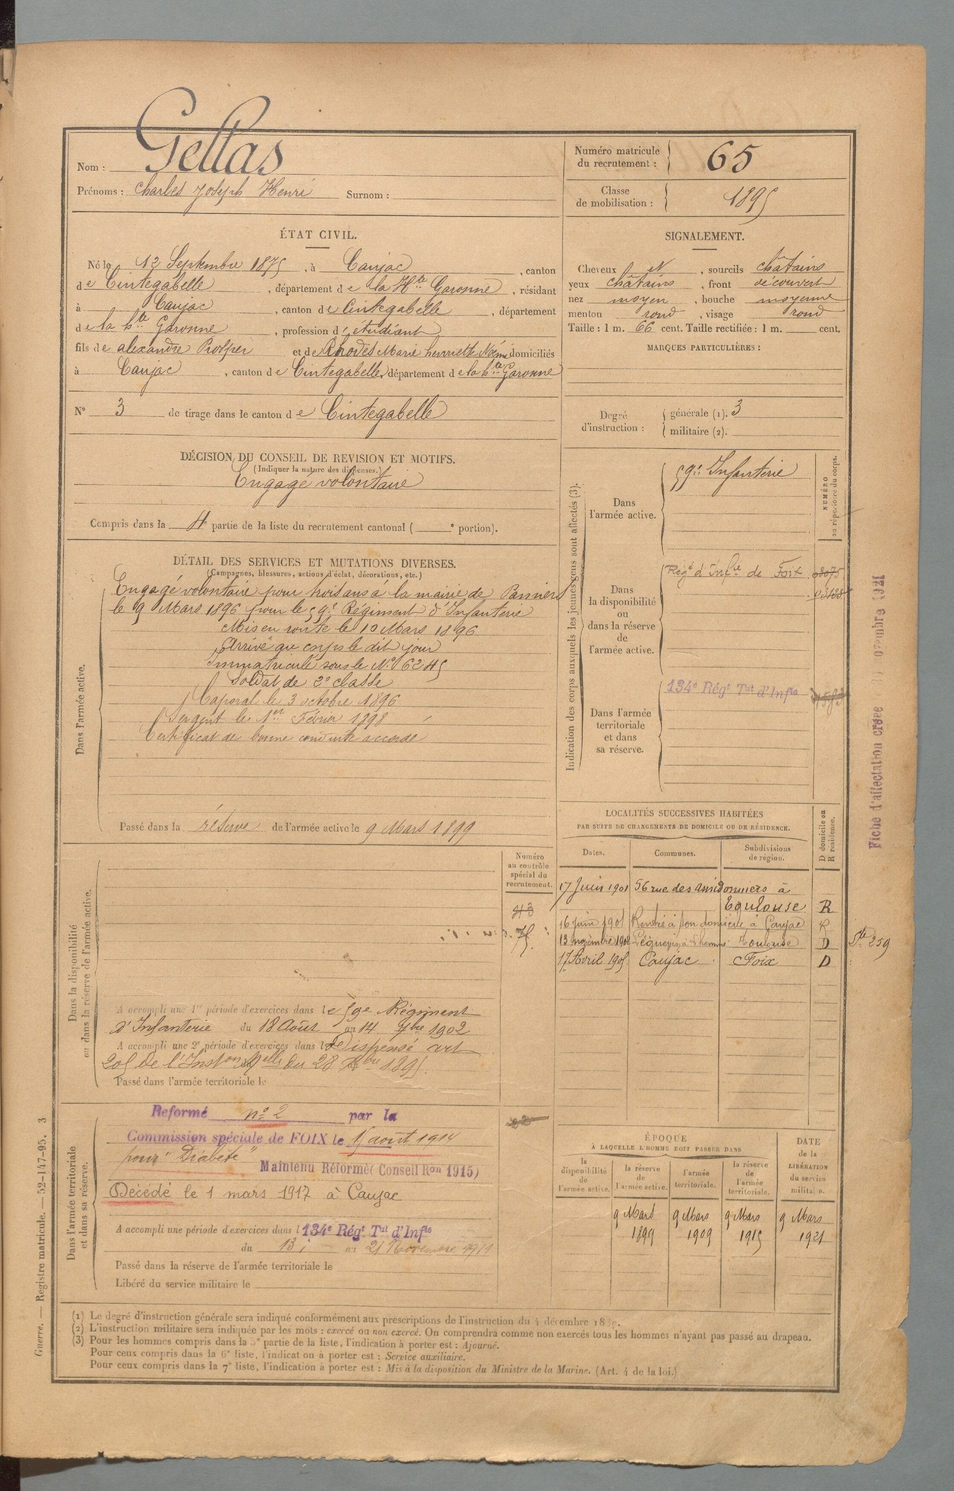 Nom : Gellas
Prénoms : Charles Joseph Henri Surnom :
Numéro matricule du recrutement : 65
Classe de mobilisation : 1895
ÉTAT CIVIL.
Né le 13 Septembre 1875, à Caujac, canton
de Cintegabelle, département de la Hte Garonne, résidant
à Caujac, canton de Cintegabelle, département
de la hte Garonne, profession d'étudiant
fils de alexandre Prosper et de Rhodes Marie henriette Noémi domiciliés
à Caujac, canton de Cintegabelle, département de la hte Garonne
N° 3 de tirage dans le canton de Cintegabelle
DÉCISION DU CONSEIL DE REVISION ET MOTIFS.
(Indiquer la nature des dispenses.)
Engagé volontaire
Compris dans la partie de la liste du recrutement cantonal ( e portion).
SIGNALEMENT.
Cheveux et, sourcils châtains
yeux châtains, front découvert
nez moyen, bouche moyenne
menton rond, visage rond
Taille : 1 m. 66 cent. Taille rectifiée : 1 m. cent.
MARQUES PARTICULIÈRES :
Degré d'instruction : générale (1). 3
militaire (2).
DÉTAIL DES SERVICES ET MUTATIONS DIVERSES.
(Campagnes, blessures, actions d'éclat, décorations, etc.)
Dans l'armée active.
Engagé volontaire pour trois ans à la mairie de Pamiers
le 9 Mars 1896 pour le 59e Régiment d'Infanterie
Mis en route le 10 Mars 1896
Arrivé au corps le dit jour
Immatriculé sous le N°
Soldat de 2e classe
Caporal le 3 octobre 1896
Sergent le 1er Février 1898
Certificat de bonne conduite accordé
Passé dans la réserve de l'armée active le 9 Mars 1899
Indication des corps auxquels les jeunes gens sont affectés (3).
NUMÉRO au répertoire du corps.
Dans l'armée active.
59e Infanterie
Dans la disponibilité ou dans la réserve de l'armée active.
Régt d'Infie de Foix
Dans l'armée territoriale et dans sa réserve.
134e Régt Tal d'Infie
Fiche d'affectation créée
LOCALITÉS SUCCESSIVES HABITÉES
PAR SUITE DE CHANGEMENTS DE DOMICILE OU DE RÉSIDENCE.
Dates. Communes. Subdivisions de région. D domicile ou R résidence.
17 Juin 1901 56 rue des amidonniers à
Toulouse R
16 juin 1901 Rentré à son domicile à Caujac R
Toulouse D
17 Avril 1905 Caujac Foix D
Dans la disponibilité ou dans la réserve de l'armée active.
Numéro au contrôle spécial du recrutement.
A accompli une 1re période d'exercices dans le 59e Régiment
d'Infanterie du 18 Août au 14 7bre 1902
A accompli une 2e période d'exercices dans le Dispensé art
de l'Inston du 28 1895.
Passé dans l'armée territoriale le
Dans l'armée territoriale et dans sa réserve.
Reformé n° 2 par la
Commission spéciale de FOIX le août 1914
pour "Diabète"
Maintenu Réformé (Conseil Ron 1915)
Décédé le 1 mars 1917 à Caujac
A accompli une période d'exercices dans l 134e Régt Tal d'Infie
du 13 au 21 Novembre
Passé dans la réserve de l'armée territoriale le
Libéré du service militaire le
ÉPOQUE
À LAQUELLE L'HOMME DOIT PASSER DANS
la disponibilité de l'armée active. la réserve de l'armée active. l'armée territoriale. la réserve de l'armée territoriale. DATE de la LIBÉRATION du service militaire.
9 Mars 1899 9 Mars 1909 9 Mars 1915 9 Mars 1921
Guerre. — Registre matricule. — 52-147-95. 3
(1) Le degré d'instruction générale sera indiqué conformément aux prescriptions de l'instruction du 4 décembre
(2) L'instruction militaire sera indiquée par les mots : exercé ou non exercé. On comprendra comme non exercés tous les hommes n'ayant pas passé au drapeau.
(3) Pour les hommes compris dans la partie de la liste, l'indication à porter est : Ajourné.
Pour ceux compris dans la 6e liste, l'indication à porter est : Service auxiliaire.
Pour ceux compris dans la 7e liste, l'indication à porter est : Mis à la disposition du Ministre de la Marine. (Art. 4 de la loi.)